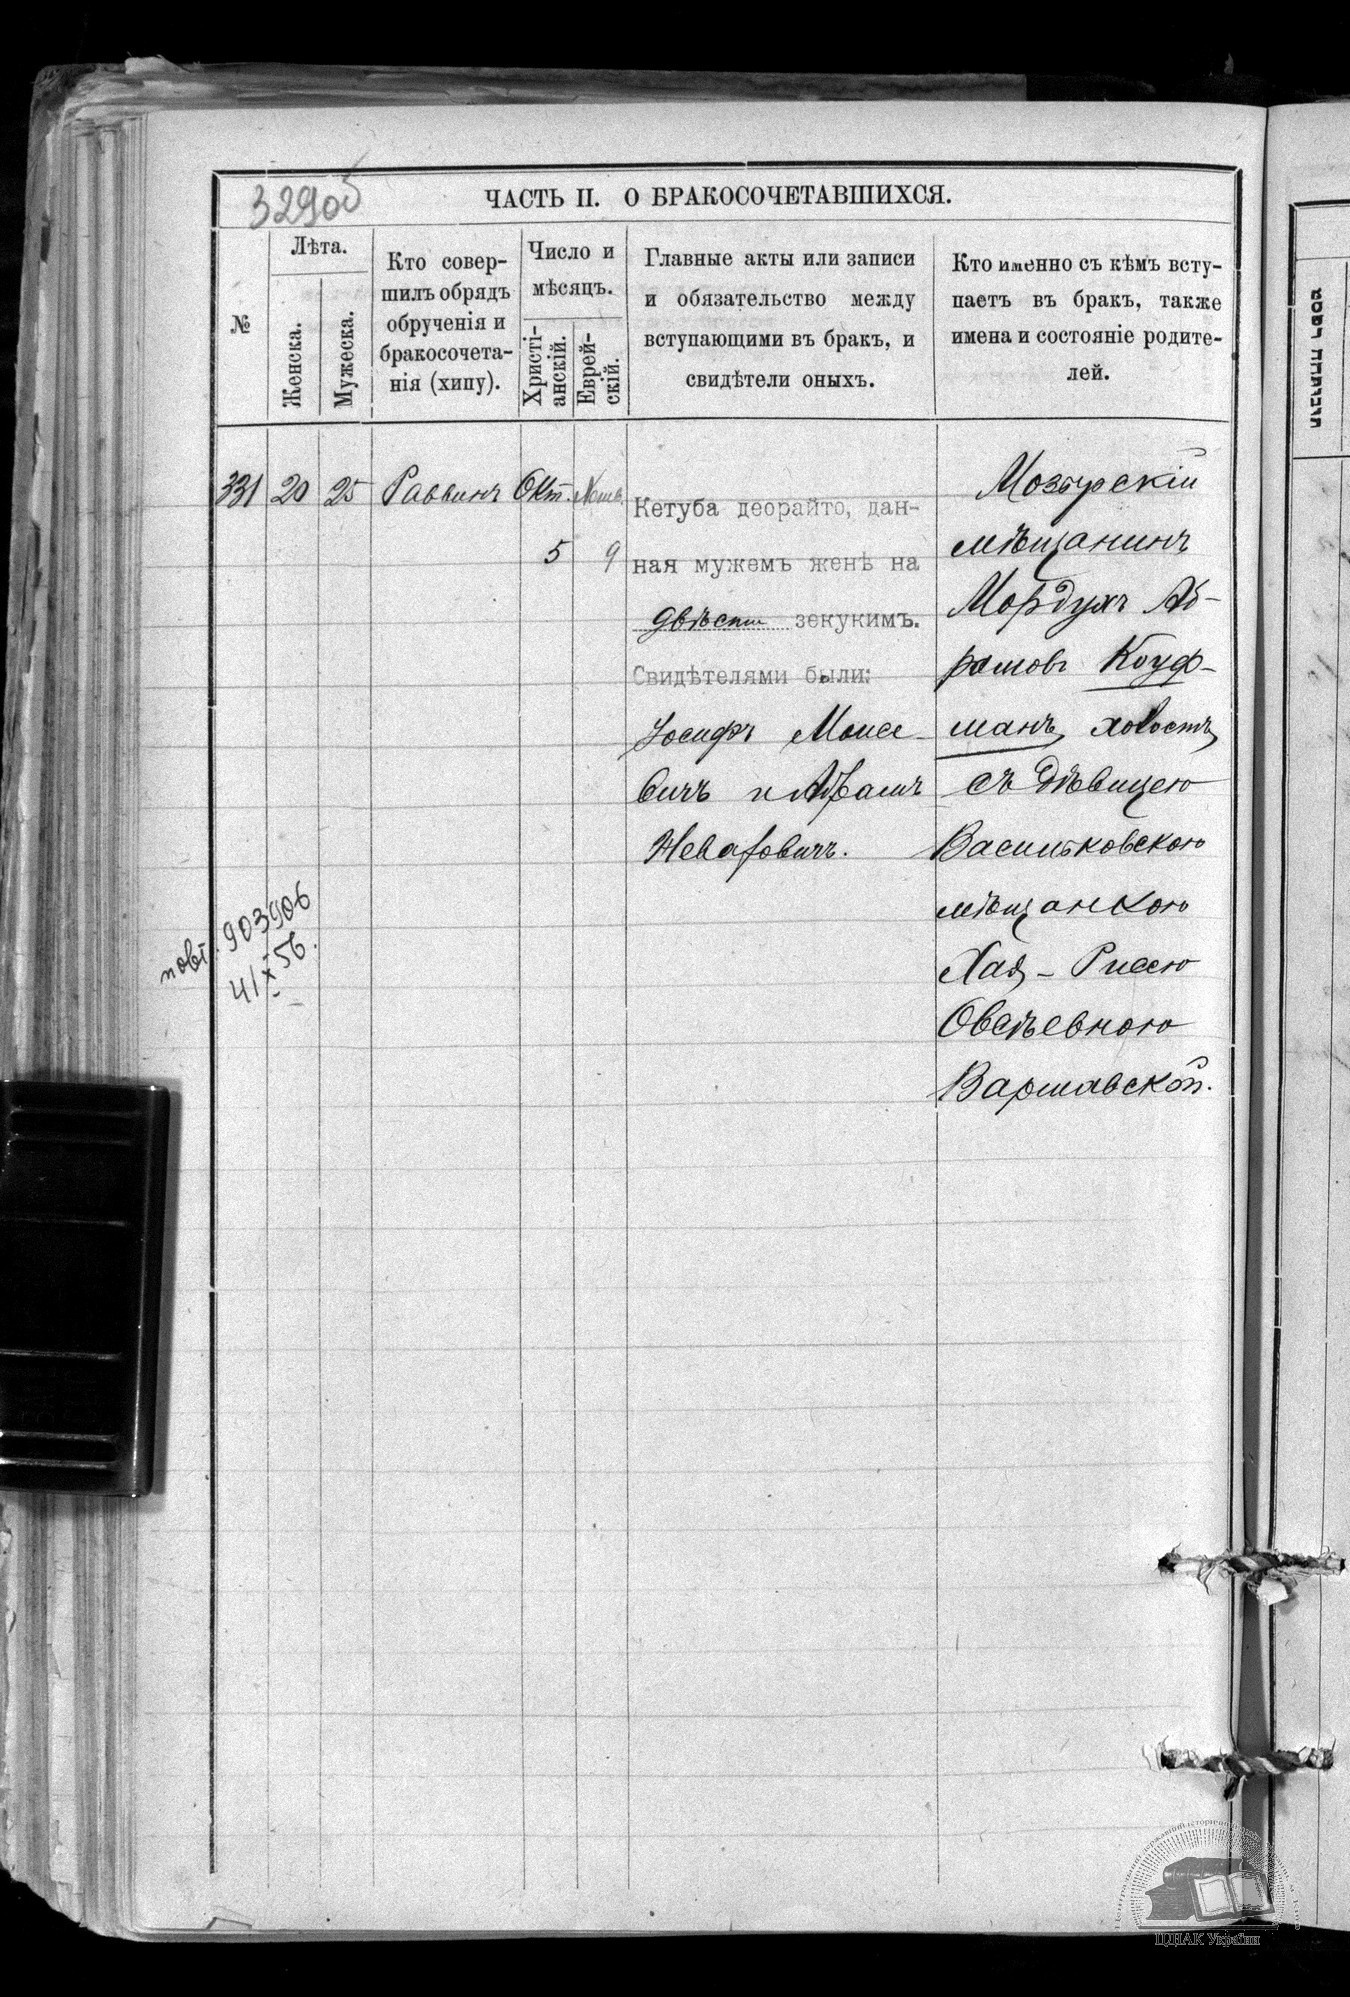 329об
ЧАСТЬ II. О БРАКОСОЧЕТАВШИХСЯ.
№
Лѣта.
Женска.
Мужеска.
Кто совер-
шилъ обрядъ
обрученія и
бракосочета-
нія (хипу).
Число и
мѣсяцъ.
Христі-
анскій.
Еврей-
скій.
Главные акты или записи
и обязательство между
вступающими въ бракъ, и
свидѣтели оныхъ.
Кто именно съ кѣмъ всту-
паетъ въ бракъ, также
имена и состояніе родите-
лей.
331 20 25 Раввинъ Окт.
5 9
Кетуба деорайто, дан-
ная мужемъ женѣ на
двѣсти зекукимъ.
Свидѣтелями были:
Іосифъ Моисе-
вичъ и Абрамъ
Невахович.
Мозырскій
мѣщанинъ
Мордухъ Аб-
рамовъ Кауф-
манъ, холостъ,
съ дѣвицею
Васильковскою
мѣщанкою
Хая-Рисею
Овсѣевною
Варшавской.
повт. 903906
41 x 56.
ЦДІАК України